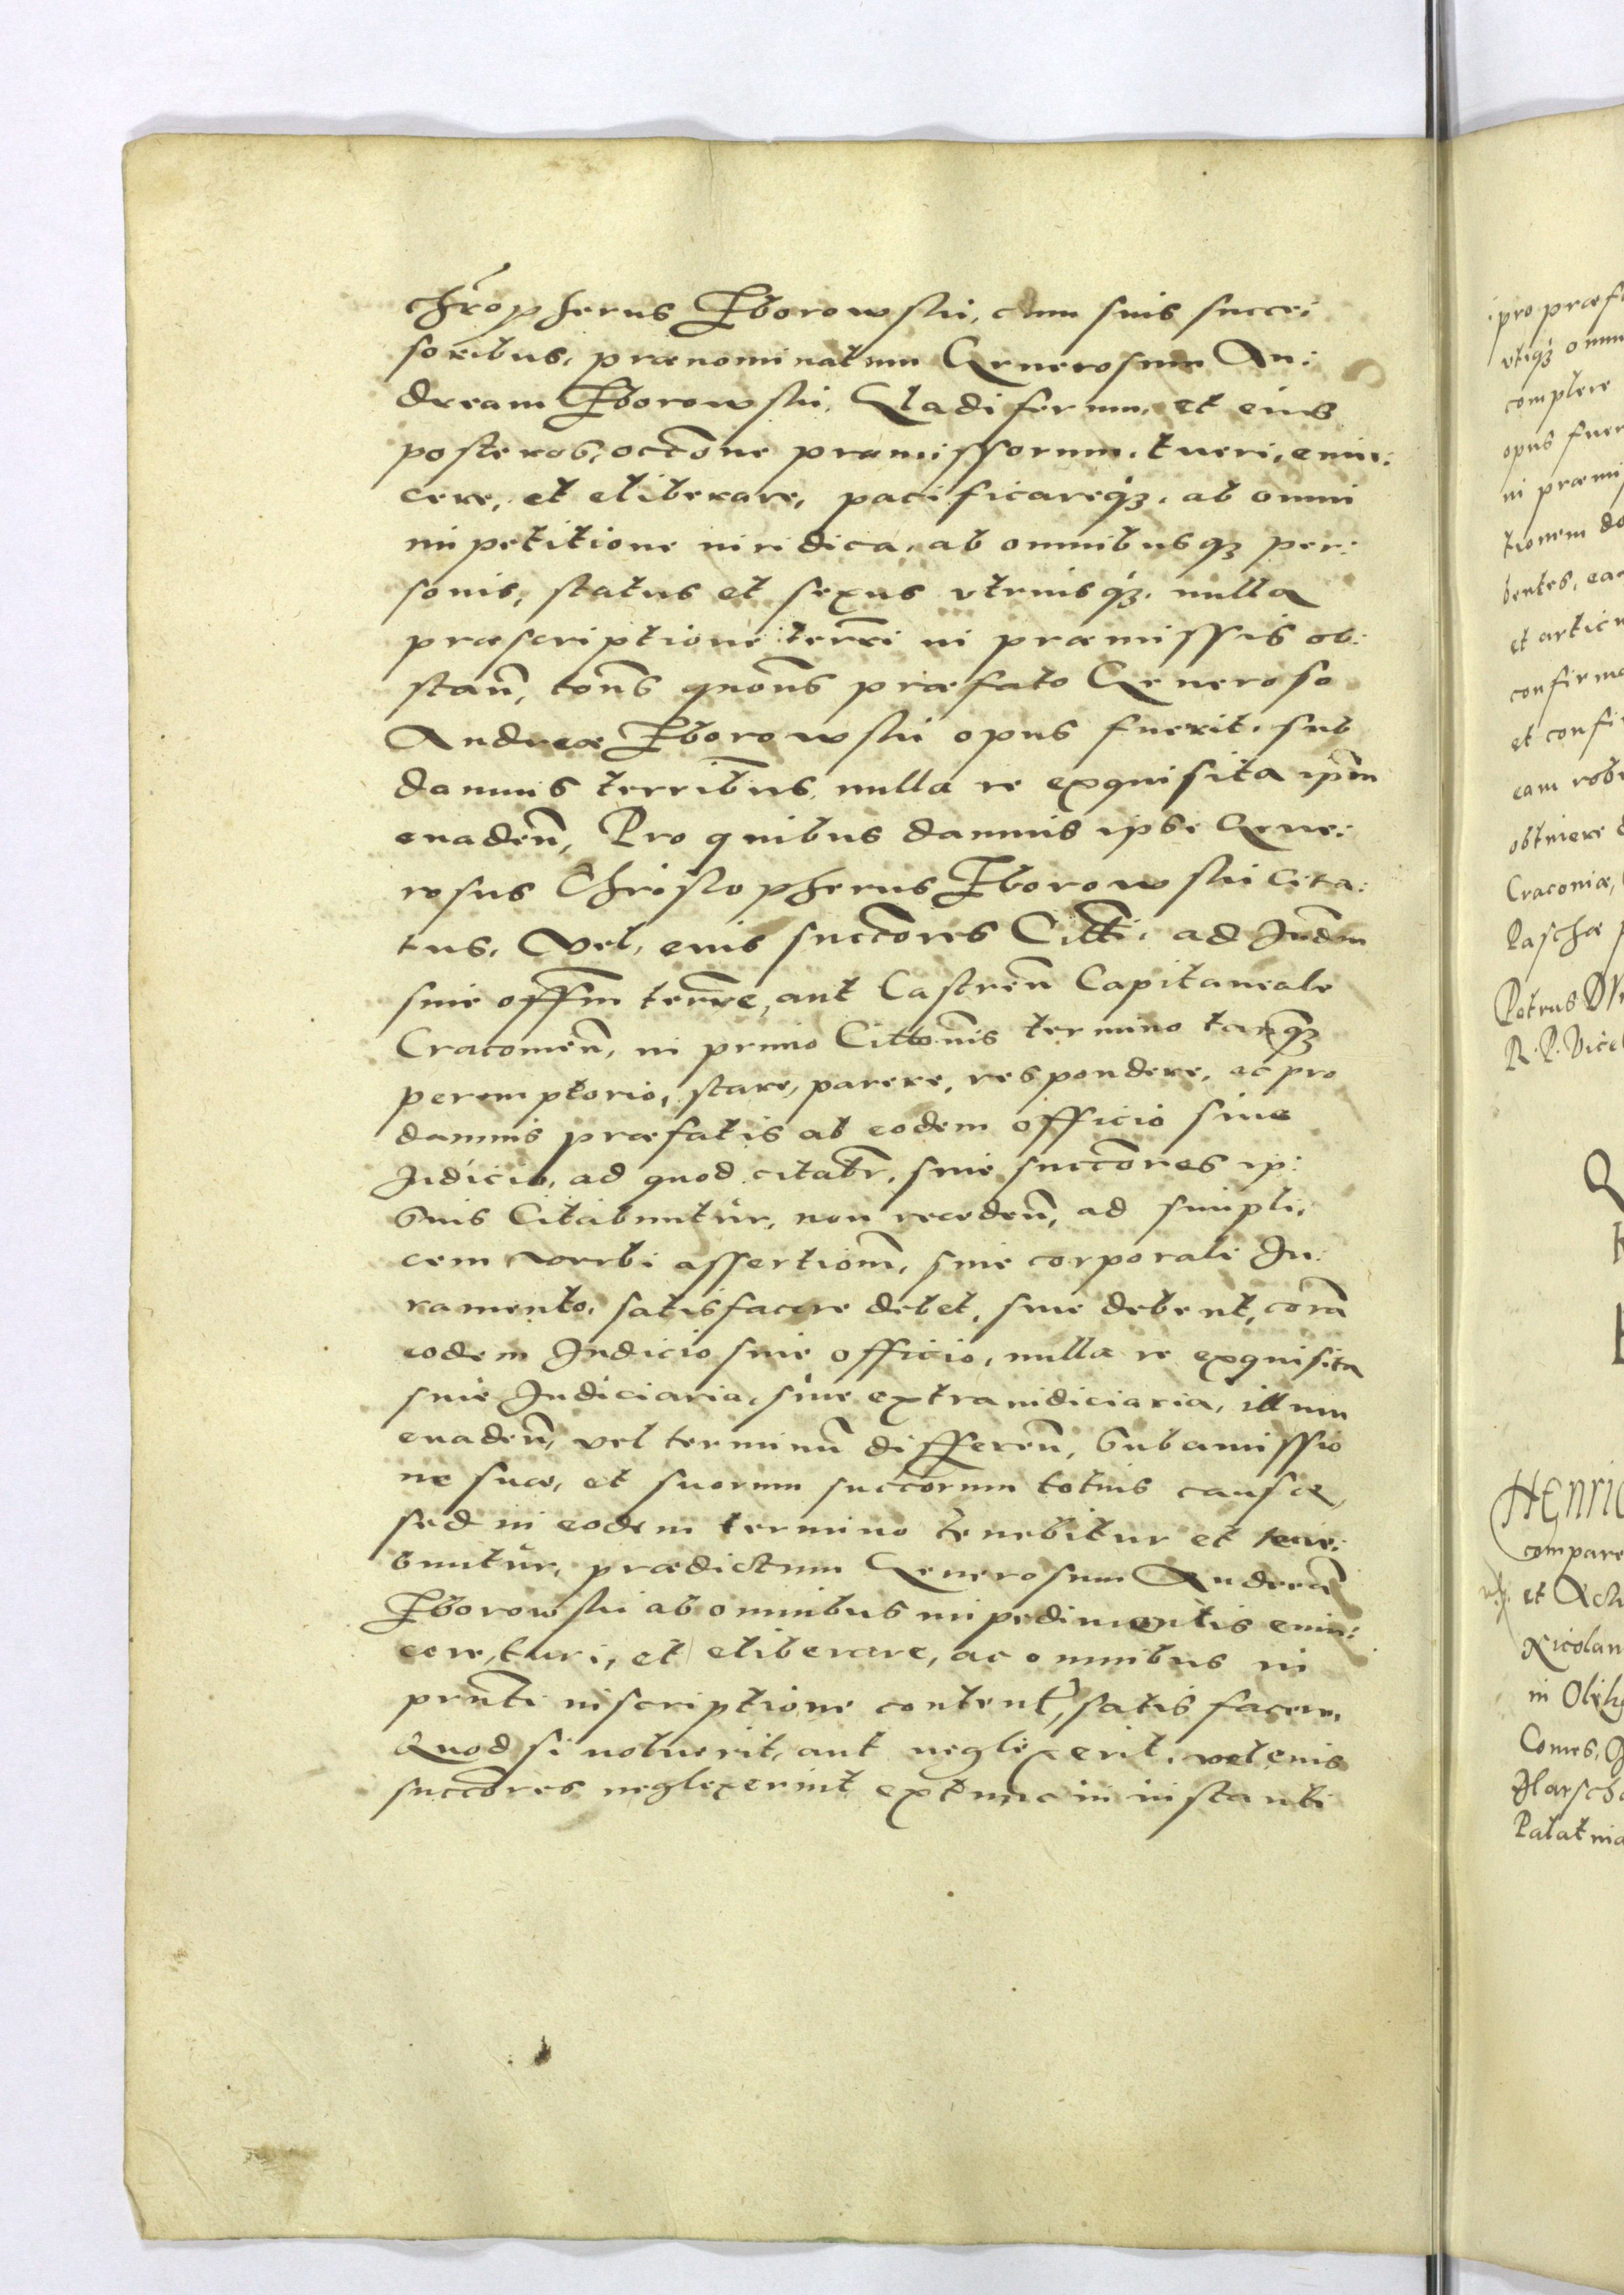 chr̃opherus Zborowskii, cum suis succes:
soribus, prænominatum Generosum An:
dream Zborowskii, Gladiferum, et eius
posteros, occõne præmissorum, tueri, euin:
cere, et eliberare, pacificareq₃, ab omni
impetitione iuridica, ab omnibusq₃ per:
sonis, status et sexus vtriusq₃, nulla
præscriptione terr̃i in præmissis ob:
stañ, tõns quõns præfato Generoso
Andreæ Zborowskii opus fuerit, sub
damnis terrib̃us, nulla re exquisita ip̃m
euadeñ, Pro quibus damnis ipse Gene:
rosus Christopherus Zborowskii cita:
tus, Vel, eius succ̃ores Citt̃i, ad Jud̃m
siue off̃m terr̃e, aut Castreñ Capitaneale
Cracouieñ, in primo Citt̃onis termino tanq₃
peremptorio, stare, parere, respondere, ac pro
damnis præfatis ab eodem officio siue
Judicio, ad quod citabr̃, siue succ̃ores ip:
sius Citabuntur, non recedeñ, ad simpli:
cem verbi assertiom̃, siue corporali Ju:
ramento, satisfacere debet, siue debent, corã
eodem Judicio siue officio, nulla re exquisita
siue Judiciaria, siue extraiudiciaria, illum
euadeñ, vel terminũ differeñ, sub amissio
ne suæ, et suorum succ̃orum totius causæ,
sed in eodem termino tenebitur et tene:
buntur, prædictum Generosum Andreã
Zborowskii ab omnibus impedimentis euin:
cere, tueri, et eliberare, ac omnibus in
prñti inscriptione content̃, satisfacere,
Quod si noluerit, aut neglexerit, vel eius
succ̃ores neglexerint extunc in instanti
pro præf
vtiq₃ omn
complere
opus fuer
in præmi
tionem do
bentes, ea
et articu
confirma
et confi
eam rob
obtinere
Cracouiæ,
Paschæ p
Petrus
R. P. Vice
Henric
compare
et Acti
Nicolau
in Olek
Comes,
Palatina